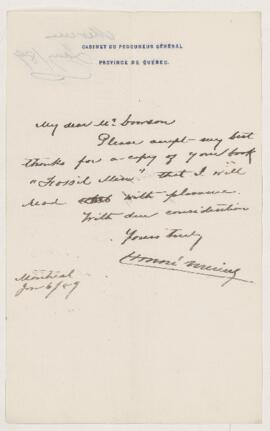 CABINET DU PROCUREUR GÉNÉRAL
PROVINCE DE QUÉBEC.
My dear Mr. Dawson
Please accept my best
thanks for a copy of your book
"Fossil Men" that I will
read with pleasure.
With due consideration
Yours truly
Honoré Mercier
Montréal
Jan 6/89